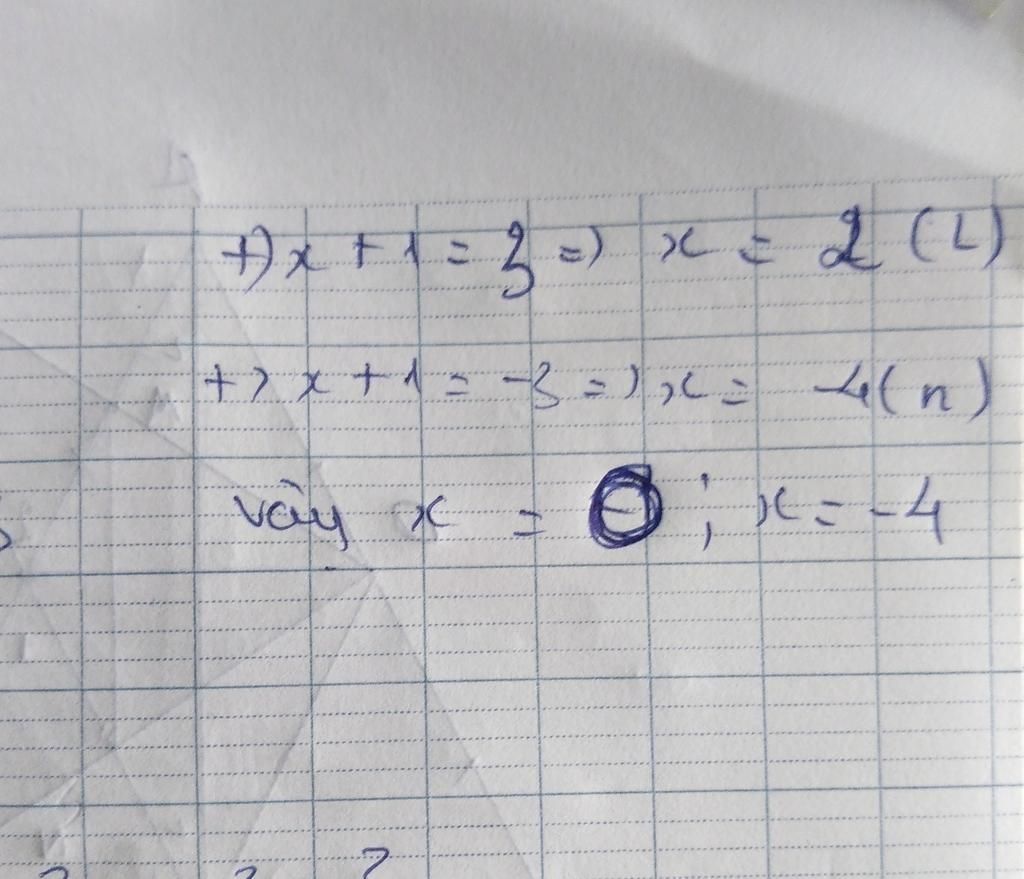 +) x + 1 = 3 => x = 2 (L)
+) x + 1 = -3 => x = -4 (n)
vậy x = 0 ; x = -4